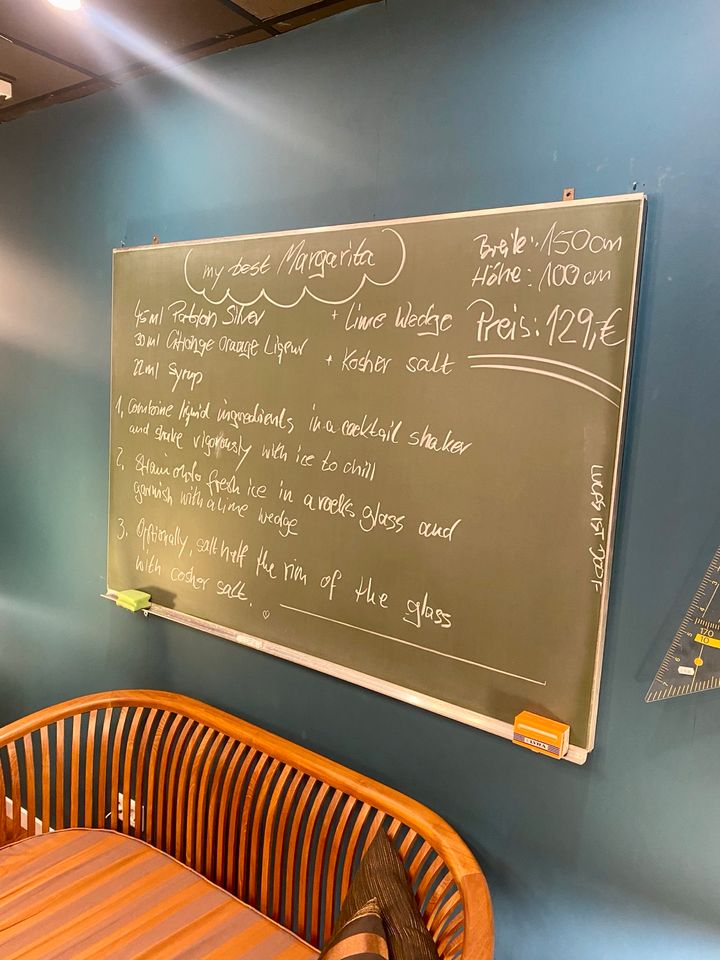 my best Margarita
45ml Patron Silver
30ml Citronge Orange Liqeur
22ml Syrup
+ Lime Wedge
+ Kosher salt
Breite: 150cm
Höhe: 100cm
Preis: 129,€
1, Combine liquid ingredients in a cocktail shaker
and shake vigorously with ice to chill
2, Strain onto fresh ice in a rocks glass and
garnish with a lime wedge
3, Optionally, salt half the rim of the glass
with cosher salt.
LUCAS IST DOOF
170
10